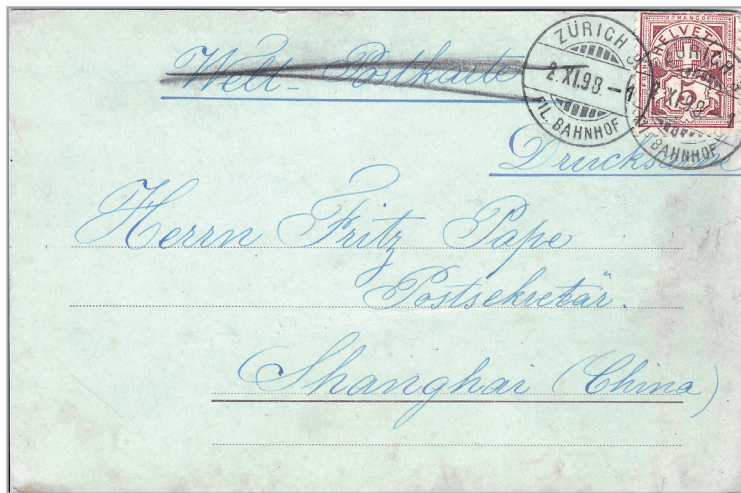 Welt-Postkarte
ZÜRICH
2.XI.98.-1
FIL. BAHNHOF
FRANCO
HELVETIA
5
ZÜRICH
XI.98
1
BAHNHOF
Drucksache
Herrn Fritz Pape
Postsekretär.
Shanghai (China)